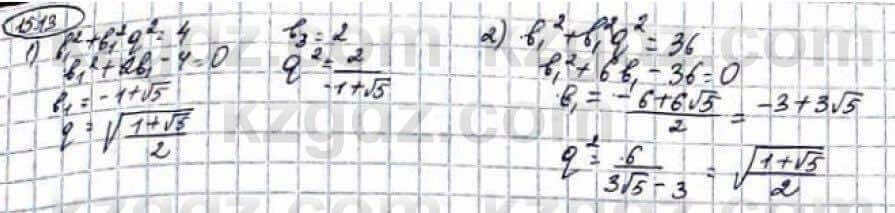 15.13
1) b₁² + b₁²q² = 4
b₁² + 2b₁ - 4 = 0
b₁ = -1 + √5
q = √((1+√5)/2)
b₃ = 2
q² = 2/(-1+√5)
2) b₁² + b₁²q² = 36
b₁² + 6b₁ - 36 = 0
b₁ = (-6+6√5)/2 = -3 + 3√5
q² = 6/(3√5 - 3) = √((1+√5)/2)
kzgdz.com